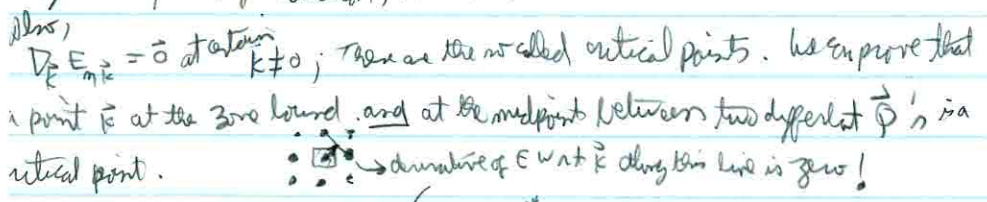 Also,
∇_k⃗ E_{nk⃗} = 0⃗ at certain k⃗≠0; These are the so called critical points. We can prove that
a point k⃗ at the zone bound. and at the midpoint between two different G⃗'s is a
critical point.
→ derivative of E wrt k⃗ along this line is zero!